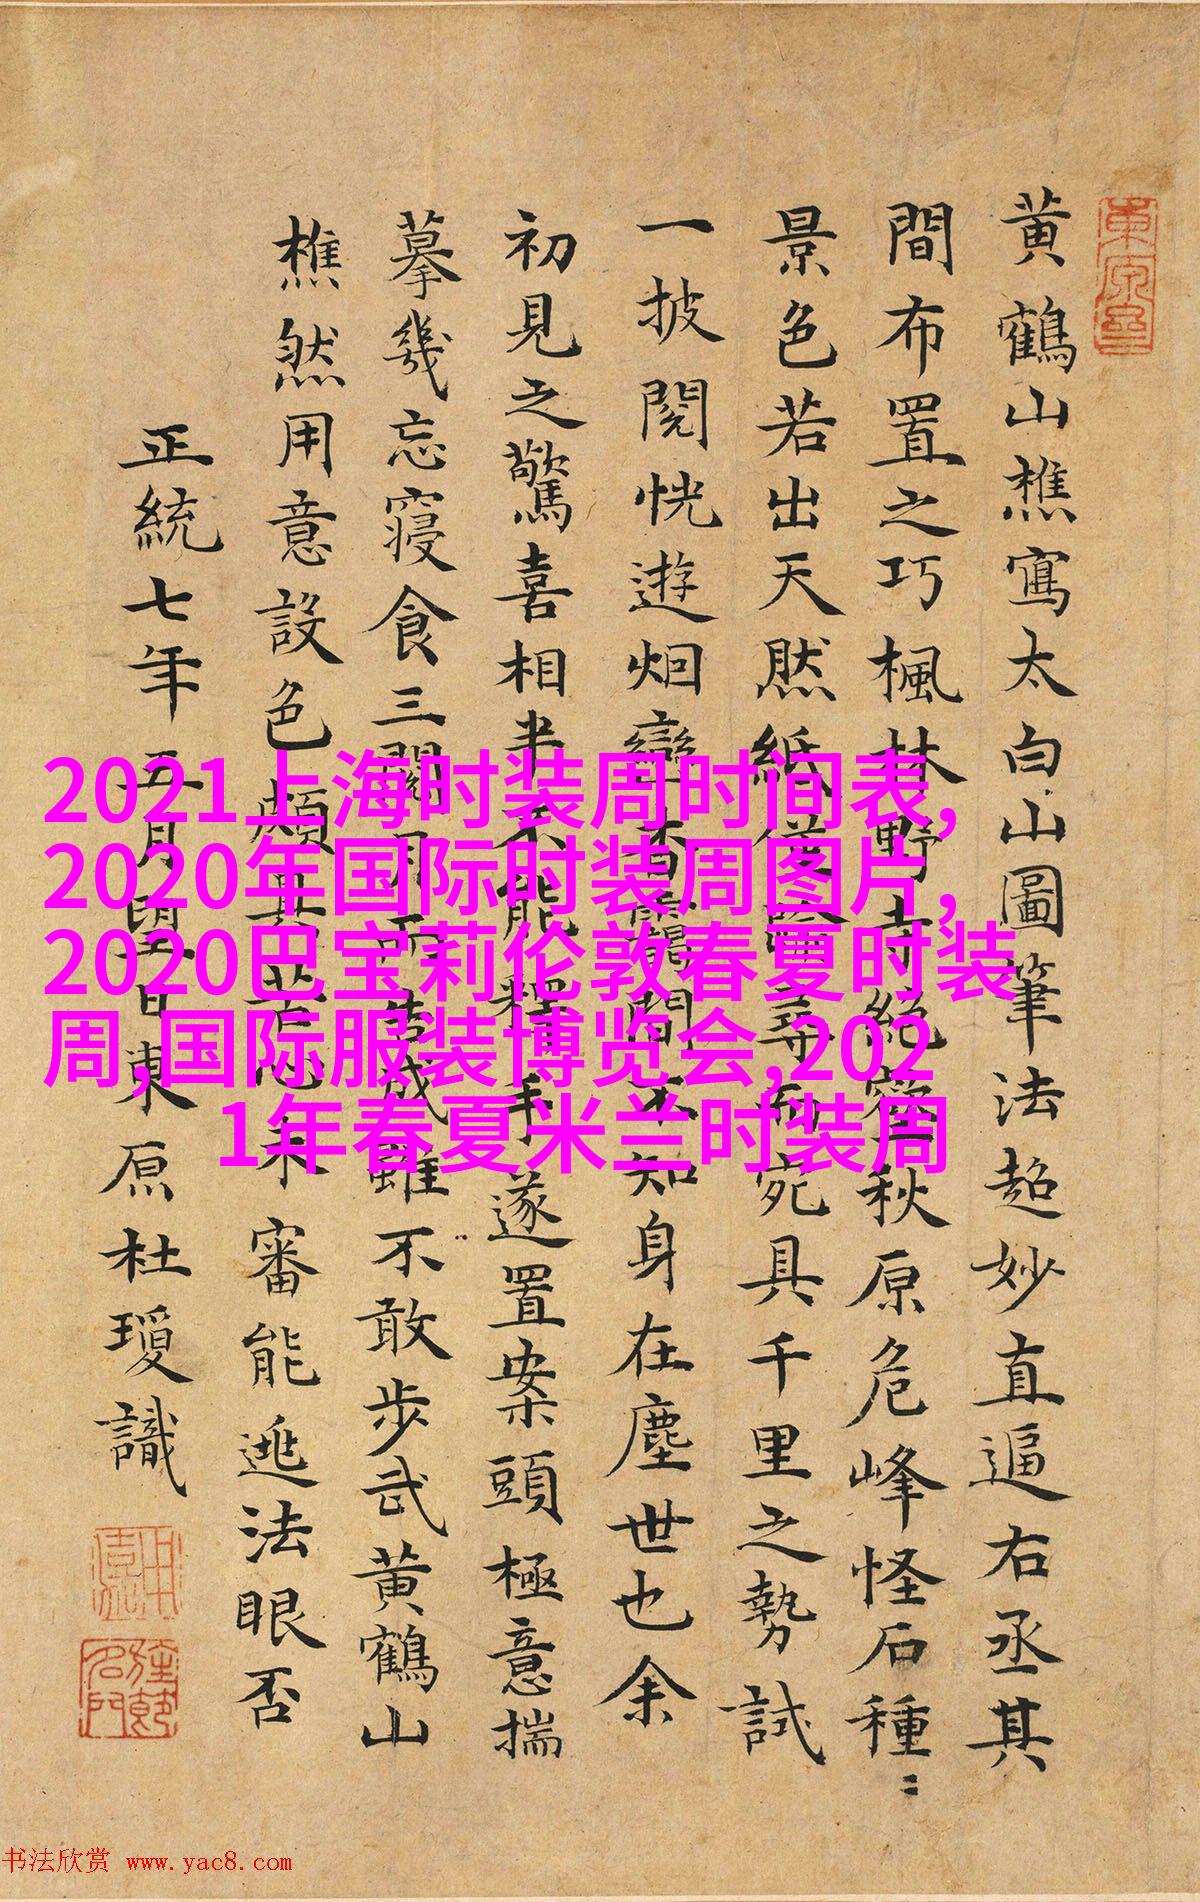 黄鶴山樵寫太白山圖筆法超妙直逼右丞其
間布置之巧楓林野寺絶壑秋原危峰怪石種〻
景色若出天然紙僅尋而宛具千里之勢試
一披閱恍遊烟巒杳靄間不知身在塵世也余
初見之驚喜相半不能釋手遂置案頭極意揣
摹幾忘寢食三閱月而告成雖不敢步武黄鶴山
樵然用意設色頗甚苦心未審能逃法眼否
正統七年五月望日東原杜瓊識
2021上海时装周时间表,
2020年国际时装周图片,
2020巴宝莉伦敦春夏时装
周,国际服装博览会,202
1年春夏米兰时装周
书法欣赏 www.yac8.com